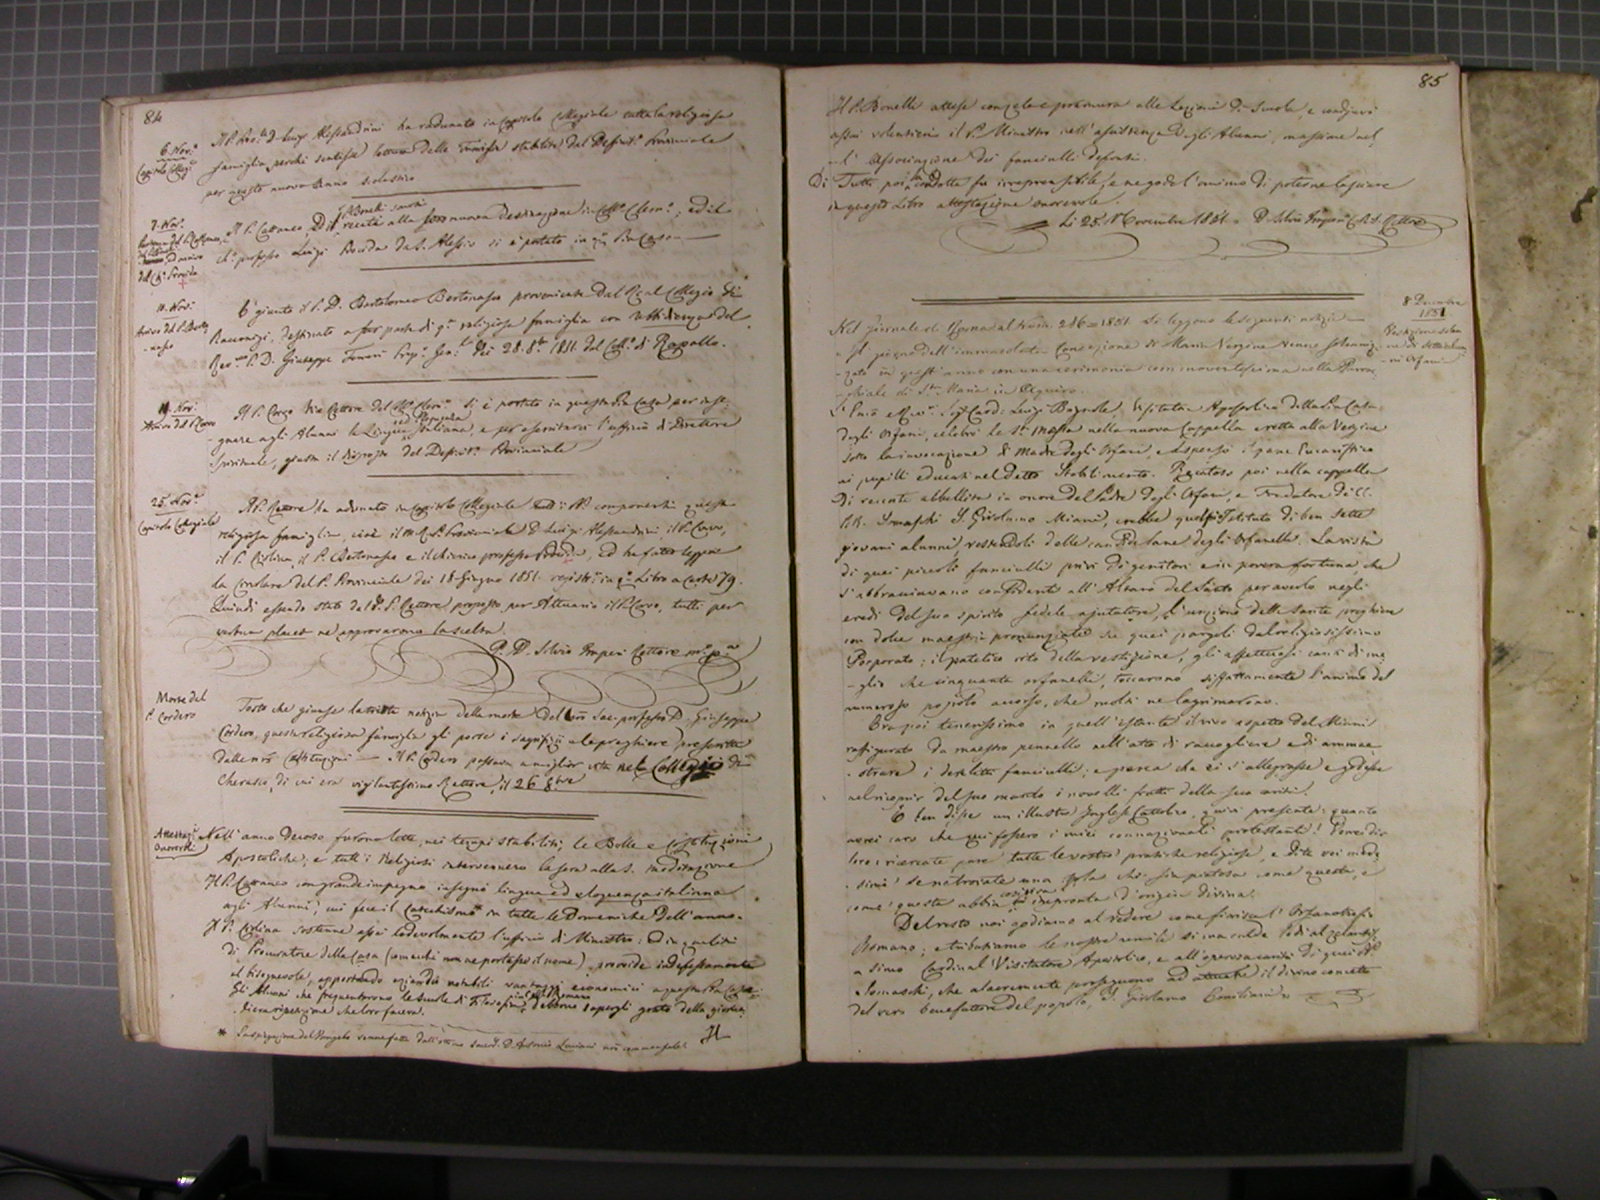 84
6. Nov.e
Capitolo Collegi.
Il P. Prov.le D. Luigi Alessandrini ha radunato in Capitolo Collegiale tutta la religiosa
famiglia, perchè sentisse lettura delle famiglie stabilite dal Definit. Provinciale
per questo nuovo anno scolastico
7. Nov.
Il P. Cattaneo, ed il P. Bonelli sonosi recati alla loro nuova destinazione in Coll.o Clem.o; ed il
ch.o professo Luigi Procida da S. Alessio si è portato in q.a Pia Casa
del Ch. Procida
11. Nov.
Arrivo del P. Berto
nasso
È giunto il P. D. Bartolomeo Bertonasso proveniente dal Real Collegio di
Racconigi, destinato a far parte di q.a religiosa famiglia con ubbidienza del
Rev.mo P. D. Giuseppe Ferreri Prep.o Gen.le dei 28. 8.bre 1851 dal Coll.o di Rapallo.
19. Nov.
Arrivo del P. Corvo
Il P. Corvo Vice Rettore del Coll.o Clem.o si è portato in questa Pia Casa per inse-
gnare agli Alunni la Lingua Italiana, e per esercitarvi l'ufficio di Direttore
Spirituale, giusta il disposto del Definit.o Provinciale
25. Nov.e
Capitolo Collegiale
Il P. Rettore ha adunato in capitolo Collegiale tutti i PP. componenti questa
religiosa famiglia, cioè il M. R. P. Provinciale D. Luigi Alessandrini, il P. Corvo,
il P. Ciolina, il P. Bertonasso e il chierico professo Procida, ed ha fatto leggere
la circolare del P. Provinciale dei 18 Giugno 1851. registr. in q.o Libro a carte 79.
Quindi essendo stato dal d.o P. Rettore proposto per Attuario il P. Corvo, tutti per
verbum placet ne approvarono la scelta.
P. D. Silvio Imperi Rettore m.o p.o
Morte del
P. Cordero
Tosto che giunse la trista notizia della morte del Sac. professo D. Giuseppe
Cordero, questa religiosa famiglia gli porse i sagrifizii e le preghiere prescritte
dalle nostre Costituzioni — Il P. Cordero passava a miglior vita nel Collegio di
Cherasco, di cui era vigilantissimo Rettore, il 26 8bre
Attestaz.
onorevoli
Nell'anno decorso furono lette, nei tempi stabiliti, le Bolle e Costituzioni
Apostoliche, e tutt'i Religiosi intervennero la sera alla S. meditazione
Il P. Cattaneo con grande impegno insegnò lingua ed eloquenza italiana
agli Alunni, cui fece il Catechismo in tutte le Domeniche dell'anno.
Il P. Ciolina sostenne assai lodevolmente l'ufficio di Ministro: ed in qualità
di Procuratore della Casa (comechè non ne portasse il nome) provvide indefessamente
al bisognevole, apportando eziandio notabili vantaggi economici a questa Pia Casa.
Gli Alunni che frequentarono le Scuole di Filosofia debbono sapergli grato della giorna-
liera ripetizione che loro faceva.
* La spiegazione del Vangelo venne fatta dall'ottimo sacerd. D. Antonio Luciani
Il
85
Il P. Bonelli attese con zelo e premura alle Lezioni di Scuola, e coadjuvò
assai volentieri il P. Ministro nell'assistenza degli Alunni, massime nel-
l'Associazione dei fanciulli defonti.
Di Tutti poi la condotta fu irreprensibile, e ne gode l'animo di poterne lasciare
in questo Libro attestazione onorevole.
Li 25. Novembre 1851. D. Silvio Imperi C.R.S. Rettore
8 Decembre
1851
Vestizione solen
ne di
ni Orfani
Nel Giornale di Roma al Num. 286 = 1851. Si leggono le seguenti notizie —
Il giorno dell'immacolata Concezione di Maria Vergine venne solenniz-
zato in quest'anno con una cerimonia commoventissima nella Parroc-
chiale di S.ta Maria in Aquiro.
L'Em.o e Rev.o Sig. Card. Luigi Vagnole, Visitatore Apostolico della Pia Casa
degli Orfani, celebrò la S.ta Messa nella nuova Cappella eretta alla Vergine
sotto la invocazione di Madre degli Orfani, e dispensò il pane Eucaristico
ai pupilli educati nel detto Stabilimento. Recatosi poi nella cappella
di recente abbellita in onore del Padre degli Orfani, e Fondatore di CC.
RR. Somaschi S. Girolamo Miani, crebbe quest'Istituto di ben sette
giovani alunni, vestendoli delle candide lane degli Orfanelli. La vista
di quei piccoli fanciulli privi di genitori e in povera fortuna, che
s'abbracciavano confidenti all'Altare del Santo per averlo negli
eredi del suo spirito fedele ajutatore, l'unzione delle sante preghiere
con dolce maestria pronunziate su quei pargoli dal religiosissimo
Porporato; il patetico rito della vestizione, gli affettuosi canti di me-
glio che cinquanta orfanelli, toccarono siffattamente l'animo del
numeroso popolo accorso, che molti ne lagrimarono.
Era poi tenerissimo in quell'istante il vivo aspetto del Miani
raffigurato da maestro pennello nell'atto di raccogliere e di ammae-
strare i derelitti fanciulli; e pareva che ei s'allegrasse e godesse
nel ricoprir del suo manto i novelli frutti della sua carità.
E ben disse un illustre Inglese Cattolico, quivi presente: quanto
avrei caro che qui fossero i miei connazionali protestanti! Porre
loro: ricercate pure tutte le vostre pratiche religiose, e dite voi mede-
simi se ne trovate una sola che sia pietosa come questa, e
come questa abbia in se l'impronta d'origine divina.
Del resto noi godiamo al vedere come fiorisca l'Orfanotrofio
Romano; e tributiamo le nostre umili e sincere lodi al zelantis-
simo Cardinal Visitatore Apostolico, e all'operosa carità di quei PP.
Somaschi, che alacremente proseguono ad attuare il divino concetto
del vero benefattore del popolo, S. Girolamo Emiliani »